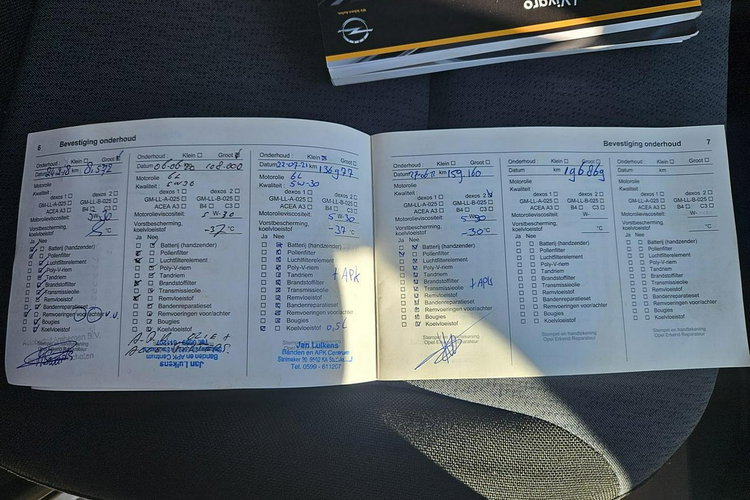 Vivaro
6 Bevestiging onderhoud
Onderhoud : Klein Groot
Datum km
Motorolie
Kwaliteit :
dexos 1 dexos 2
GM-LL-A-025 GM-LL-B-025
ACEA A3 B4 C3
Motorolieviscositeit:
Vorstbescherming,
koelvloeistof °C
Ja Nee
Batterij (handzender)
Pollenfilter
Luchtfilterelement
Poly-V-riem
Tandriem
Brandstoffilter
Transmissieolie
Remvloeistof
Bandenreparatieset
Remvoeringen voor/achter
Bougies
Koelvloeistof
Onderhoud : Klein Groot
Datum km 108.000
Motorolie 6L
Kwaliteit : 5W30
dexos 1 dexos 2
GM-LL-A-025 GM-LL-B-025
ACEA A3 B4 C3
Motorolieviscositeit: 5 W-30
Vorstbescherming,
koelvloeistof -37 °C
Ja Nee
Batterij (handzender)
Pollenfilter
Luchtfilterelement
Poly-V-riem
Tandriem
Brandstoffilter
Transmissieolie
Remvloeistof
Bandenreparatieset
Remvoeringen voor/achter
Bougies
Koelvloeistof
Banden en APK Centrum
Jan Luikens
Onderhoud : Klein Groot
Datum 22-07-21 km 136977
Motorolie 6L
Kwaliteit : 5W-30
dexos 1 dexos 2
GM-LL-A-025 GM-LL-B-025
ACEA A3 B4 C3
Motorolieviscositeit: 5 W-30
Vorstbescherming,
koelvloeistof -37 °C
Ja Nee
Batterij (handzender)
Pollenfilter
Luchtfilterelement
Poly-V-riem
Tandriem + APK
Brandstoffilter
Transmissieolie
Remvloeistof
Bandenreparatieset
Remvoeringen voor/achter
Bougies
Koelvloeistof 0,5L
Jan Luikens
Banden en APK Centrum
Tel. 0599 - 611207
Bevestiging onderhoud 7
Onderhoud : Klein Groot
Datum km 159160
Motorolie
Kwaliteit :
dexos 1 dexos 2
GM-LL-A-025 GM-LL-B-025
ACEA A3 B4 C3
Motorolieviscositeit:
Vorstbescherming,
koelvloeistof -30 °C
Ja Nee
Batterij (handzender)
Pollenfilter
Luchtfilterelement
Poly-V-riem
Tandriem
Brandstoffilter
Transmissieolie + APK
Remvloeistof
Bandenreparatieset
Remvoeringen voor/achter
Bougies
Koelvloeistof
Stempel en handtekening
Opel Erkend Reparateur
Onderhoud : Klein Groot
Datum km 196869
Motorolie
Kwaliteit :
dexos 1 dexos 2
GM-LL-A-025 GM-LL-B-025
ACEA A3 B4 C3
Motorolieviscositeit: W-
Vorstbescherming,
koelvloeistof °C
Ja Nee
Batterij (handzender)
Pollenfilter
Luchtfilterelement
Poly-V-riem
Tandriem
Brandstoffilter
Transmissieolie
Remvloeistof
Bandenreparatieset
Remvoeringen voor/achter
Bougies
Koelvloeistof
Stempel en handtekening
Opel Erkend Reparateur
Onderhoud : Klein Groot
Datum km
Motorolie
Kwaliteit :
dexos 1 dexos 2
GM-LL-A-025 GM-LL-B-025
ACEA A3 B4 C3
Motorolieviscositeit: W-
Vorstbescherming,
koelvloeistof °C
Ja Nee
Batterij (handzender)
Pollenfilter
Luchtfilterelement
Poly-V-riem
Tandriem
Brandstoffilter
Transmissieolie
Remvloeistof
Bandenreparatieset
Remvoeringen voor/achter
Bougies
Koelvloeistof
Stempel en handtekening
Opel Erkend Reparateur